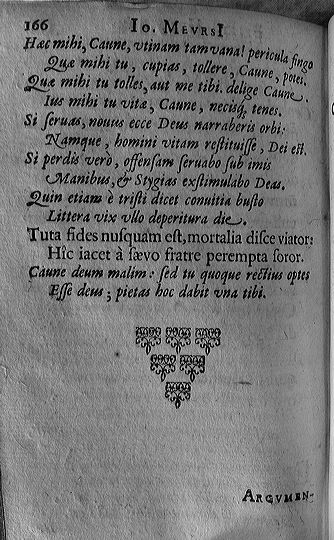 166 IO. MEVRSI
Hæc mihi, Caune, vtinam tam vana! pericula fingo
Quæ mihi tu, cupias, tollere, Caune, potes.
Quæ mihi tu tolles, aut me tibi. delige Caune.
Ius mihi tu vitæ, Caune, necisq; tenes.
Si seruas, nouus ecce Deus narraberis orbi:
Namque, homini vitam restituisse, Dei est.
Si perdis verò, offensam seruabo sub imis
Manibus, & Stygias exstimulabo Deas.
Quin etiam è tristi dicet conuitia busto
Littera vix vllo deperitura die.
Tuta fides nusquam est, mortalia disce viator:
Hîc iacet à sævo fratre perempta soror.
Caune deum malim: sed tu quoque rectius optes
Esse deus; pietas hoc dabit vna tibi.
ARGVMEN-